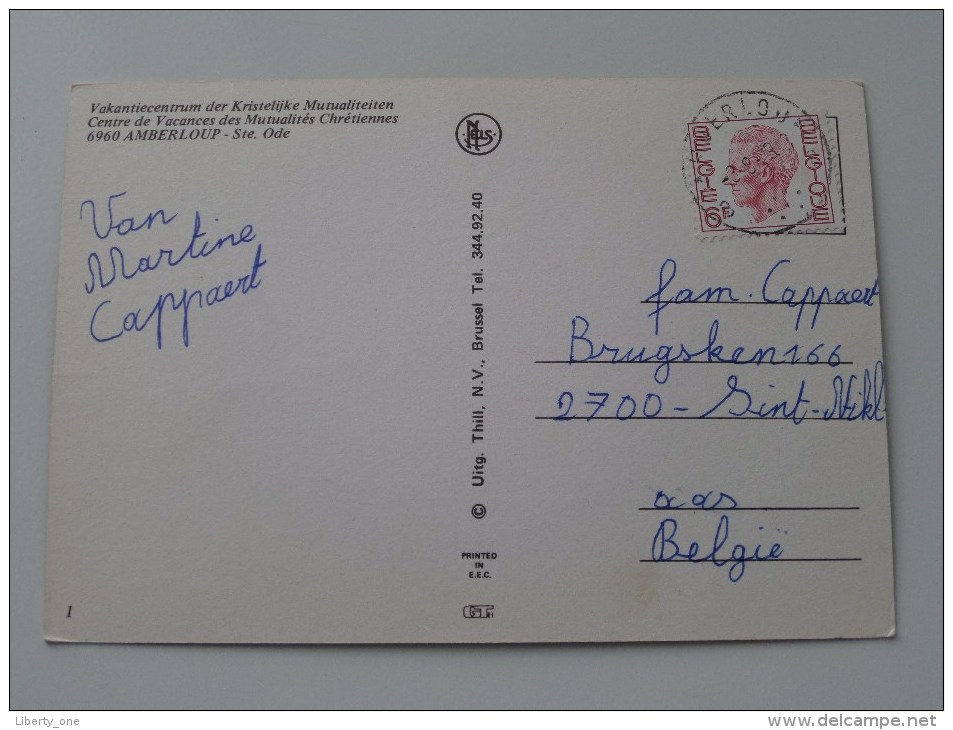 Vakantiecentrum der Kristelijke Mutualiteiten
Centre de Vacances des Mutualités Chrétiennes
6960 AMBERLOUP - Ste. Ode
Van
Martine
Cappaert
© Uitg. Thill, N.V., Brussel Tel. 344.92.40
PRINTED
IN
E.E.C.
1
BELGIE
BELGIQUE
fam. Cappaert
Brugsken 166
2700 - Sint-Nikl-
aas
België
Liberty_one
www.delcampe.net